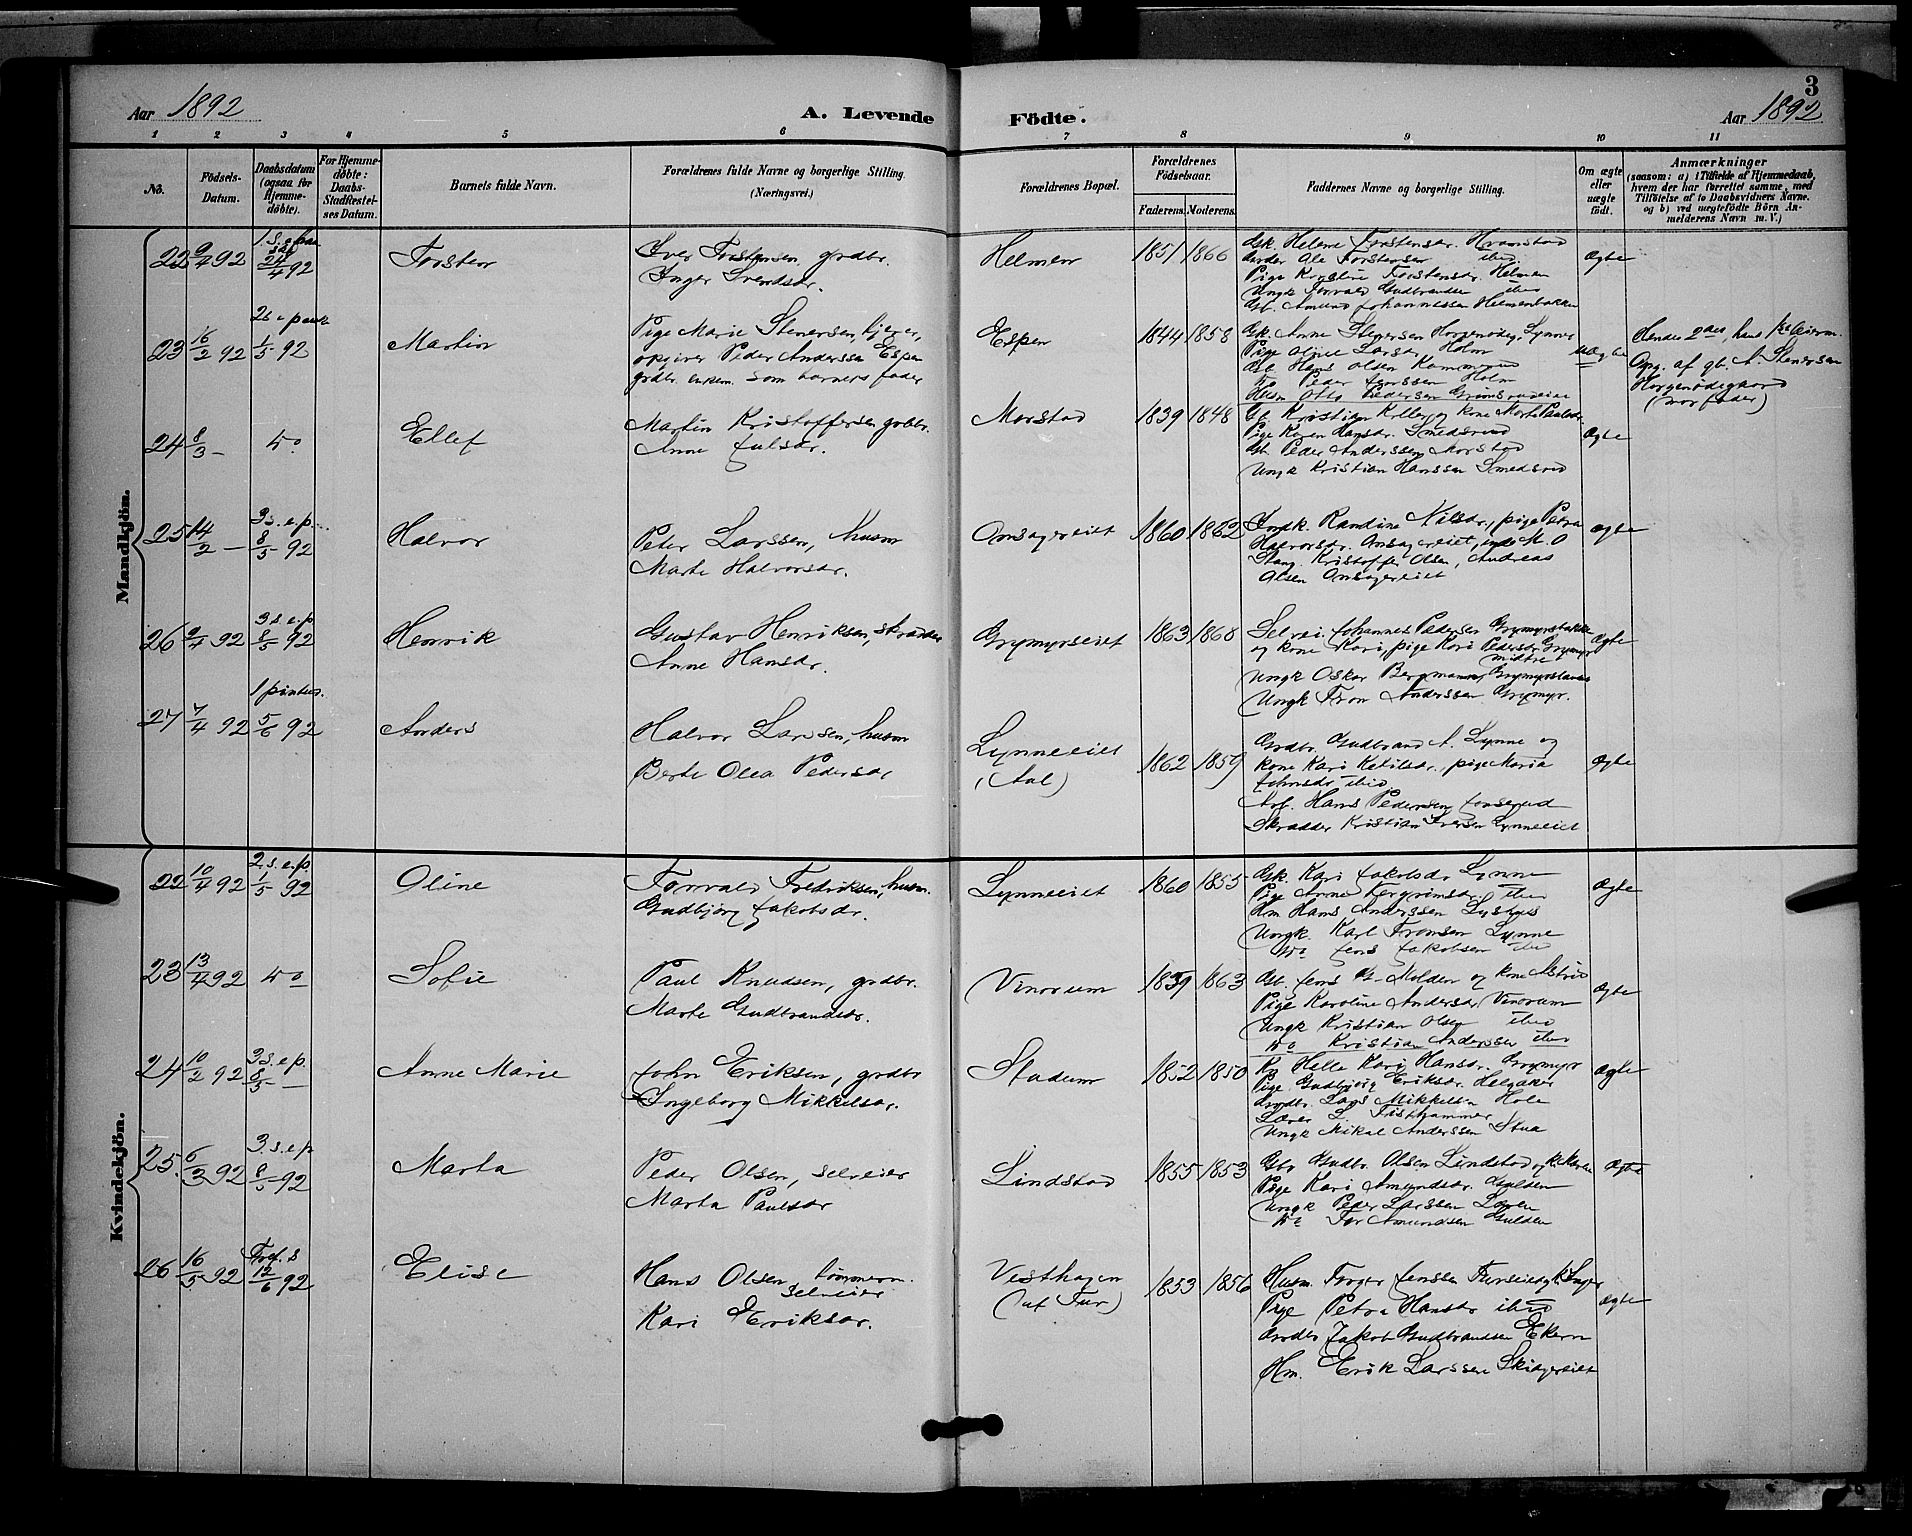 3
Aar 1892
A. Levende
Födte.
Aar 1892
1 2 3 4 5 6 7 8 9 10 11
Nö.
Födsels-
Datum.
Daabsdatum
(ogsaa for
Hjemme-
döbte).
For Hjemme-
döbte:
Daabs-
Stadfæstel-
ses Datum.
Barnets fulde Navn.
Forældrenes fulde Navne og borgerlige Stilling.
(Næringsvei.)
Forældrenes Bopæl.
Forældrenes
Födselsaar.
Faderens. Moderens.
Faddernes Navne og borgerlige Stilling.
Om ægte
eller
uægte
födt.
Anmærkninger
(saasom: a) i Tilfælde af Hjemmedaab,
hvem der har forrettet samme, med
Tilföielse af to Daabsvidners Navne.
og b) ved uægtefödte Börn An-
melderens Navn m. V.)
Mandkjön.
22 9/4 92
24/4 92
Torsten
Iver Torstensen, grdbr.
Inger Svendsdr.
Helmen
1851 1866
Gk. Helene Torstensdr. Hramstad
Ole Torstensen ibid.
Pige Kirstine Torstensdr. Helmen
Ungk Torvald Gudbrandsen ibid
Gb. Amund Johannessen Helmenbakke
Ægte
23 16/2 92
2 s e paask
1/5 92
Martin
Pige Marie Stenersen, hjeme,
opgiver Peder Anderssen Espen
grdbr. enkem. som barnets fader
Espen
1844 1858
Gk. Anne
Pige Oline Larsdr. Holm
Gb. Hans Olsen
Do Peder Larssen Holm
Otto Pedersen
Uægte
Hendes 2det, hans 1ste leierm.
Opg. af gb. A. Stenersen
Horgenödegaard
(morfader)
24 8/3 –
do
Ellef
Martin Kristoffersen, grdbr.
Anne Julsdr.
Morstad
1839 1848
Gb. Kristian Koller og kone Marte Paulsdr.
Pige Karen Hansdr. Smedsrud
Gb. Peder Anderssen Morstad
Ungk Kristian Hanssen Smedsrud
Ægte
25 14/2 –
3 s. e. p.
8/5 92
Halvor
Peter Larssen, husm
Marte Halvorsdr.
Onsagereiet
1860 1862
Randine Nilsdr., pige Petra
Halvorsdr. Onsagereiet, M. O
Stang. Kristoffer Olsen, Andreas
Olsen Onsagereiet
Ægte
26 9/4 92
3 s e p
8/5 92
Henrik
Gustav Henriksen, skrædder
Anne Hansdr.
Grymyrseiet
1863 1868
Selvei. Johannes Pedersen Grymyrsbakke
og kone Kari, pige Kari Pedersdr Grymyr
midtre
Ungk Oskar Bergmann, Grymyrslaaen
Ungk Tron Anderssen Grymyr.
Ægte
27 7/4 92
1 pintsed.
5/6 92
Anders
Halvor Larssen, husm
Berte Olea Pedersdr
Lynneeiet
(Aal)
1862 1859
Grdbr. Gudbrand A. Lynne og
kone Kari Ketilsdr., pige Maria
Johnsdr ibid
Arb. Hans Pedersen
Skrædder Kristian Iversen Lynneeiet
Ægte
Kvindekjön.
22 10/4 92
2 s. e. p.
1/5 92
Oline
Torvald Fredriksen, husm.
Gudbjörg Jakobsdr.
Lynneeiet
1860 1855
Gk. Kari Jakobsdr Lynne
Pige Anne Torgrimsdr. ibid
Hm Hans Anderssen Lyshus
Ungk. Karl Tronsen Lynne
do Jens Jakobsen ibid
Ægte
23 13/4 92
do
Sofie
Paul Knudsen, grdbr.
Marte Gudbrandsdr.
Vinorum
1839 1863
Gb. Jens G. Molden og kone Astrid
Pige Karoline Andersdr Vinorum
Ungk Kristian Olsen ibid
do Kristian Anderssen ibid
Ægte
24 10/2 92
3 s. e. p.
8/5 –
Anne Marie
John Eriksen, grdbr
Ingeborg Mikkelsdr.
Stadum
1852 1850
Helle Kari Hansdr. Grymyr
Pige. Gudbjörg Eriksdr. Helgaker
Grdbr. Lars Mikkelsen Hole
Lærer L. Tisthammer
Ungk Mikal Anderssen Stua
Ægte
25. 6/3 92
3. s. e p
8/5 92
Marta
Peder Olsen, selveier
Marta Paulsdr
Lindstad
1855 1853
Gb. Gudbr. Olsen Lindstad og k. Marte
Pige Kari Amundsdr. Gulden
Ungk Peder Larssen Loven
do Tor Amundsen Gulden
Ægte
26 16/5 92
Tref. s
12/6 92
Elise
Hans Olsen, tömmerm.
selveier
Kari Eriksdr.
Vesthagen
(af Tur)
1853 1856
Husm Torger Jenssen Tverseiet og k. Inger
Pige Petra Hansdr ibid
Grdbr Jakob Gudbrandsen Ekern
Hm. Erik Larssen Skiagereiet
Ægte